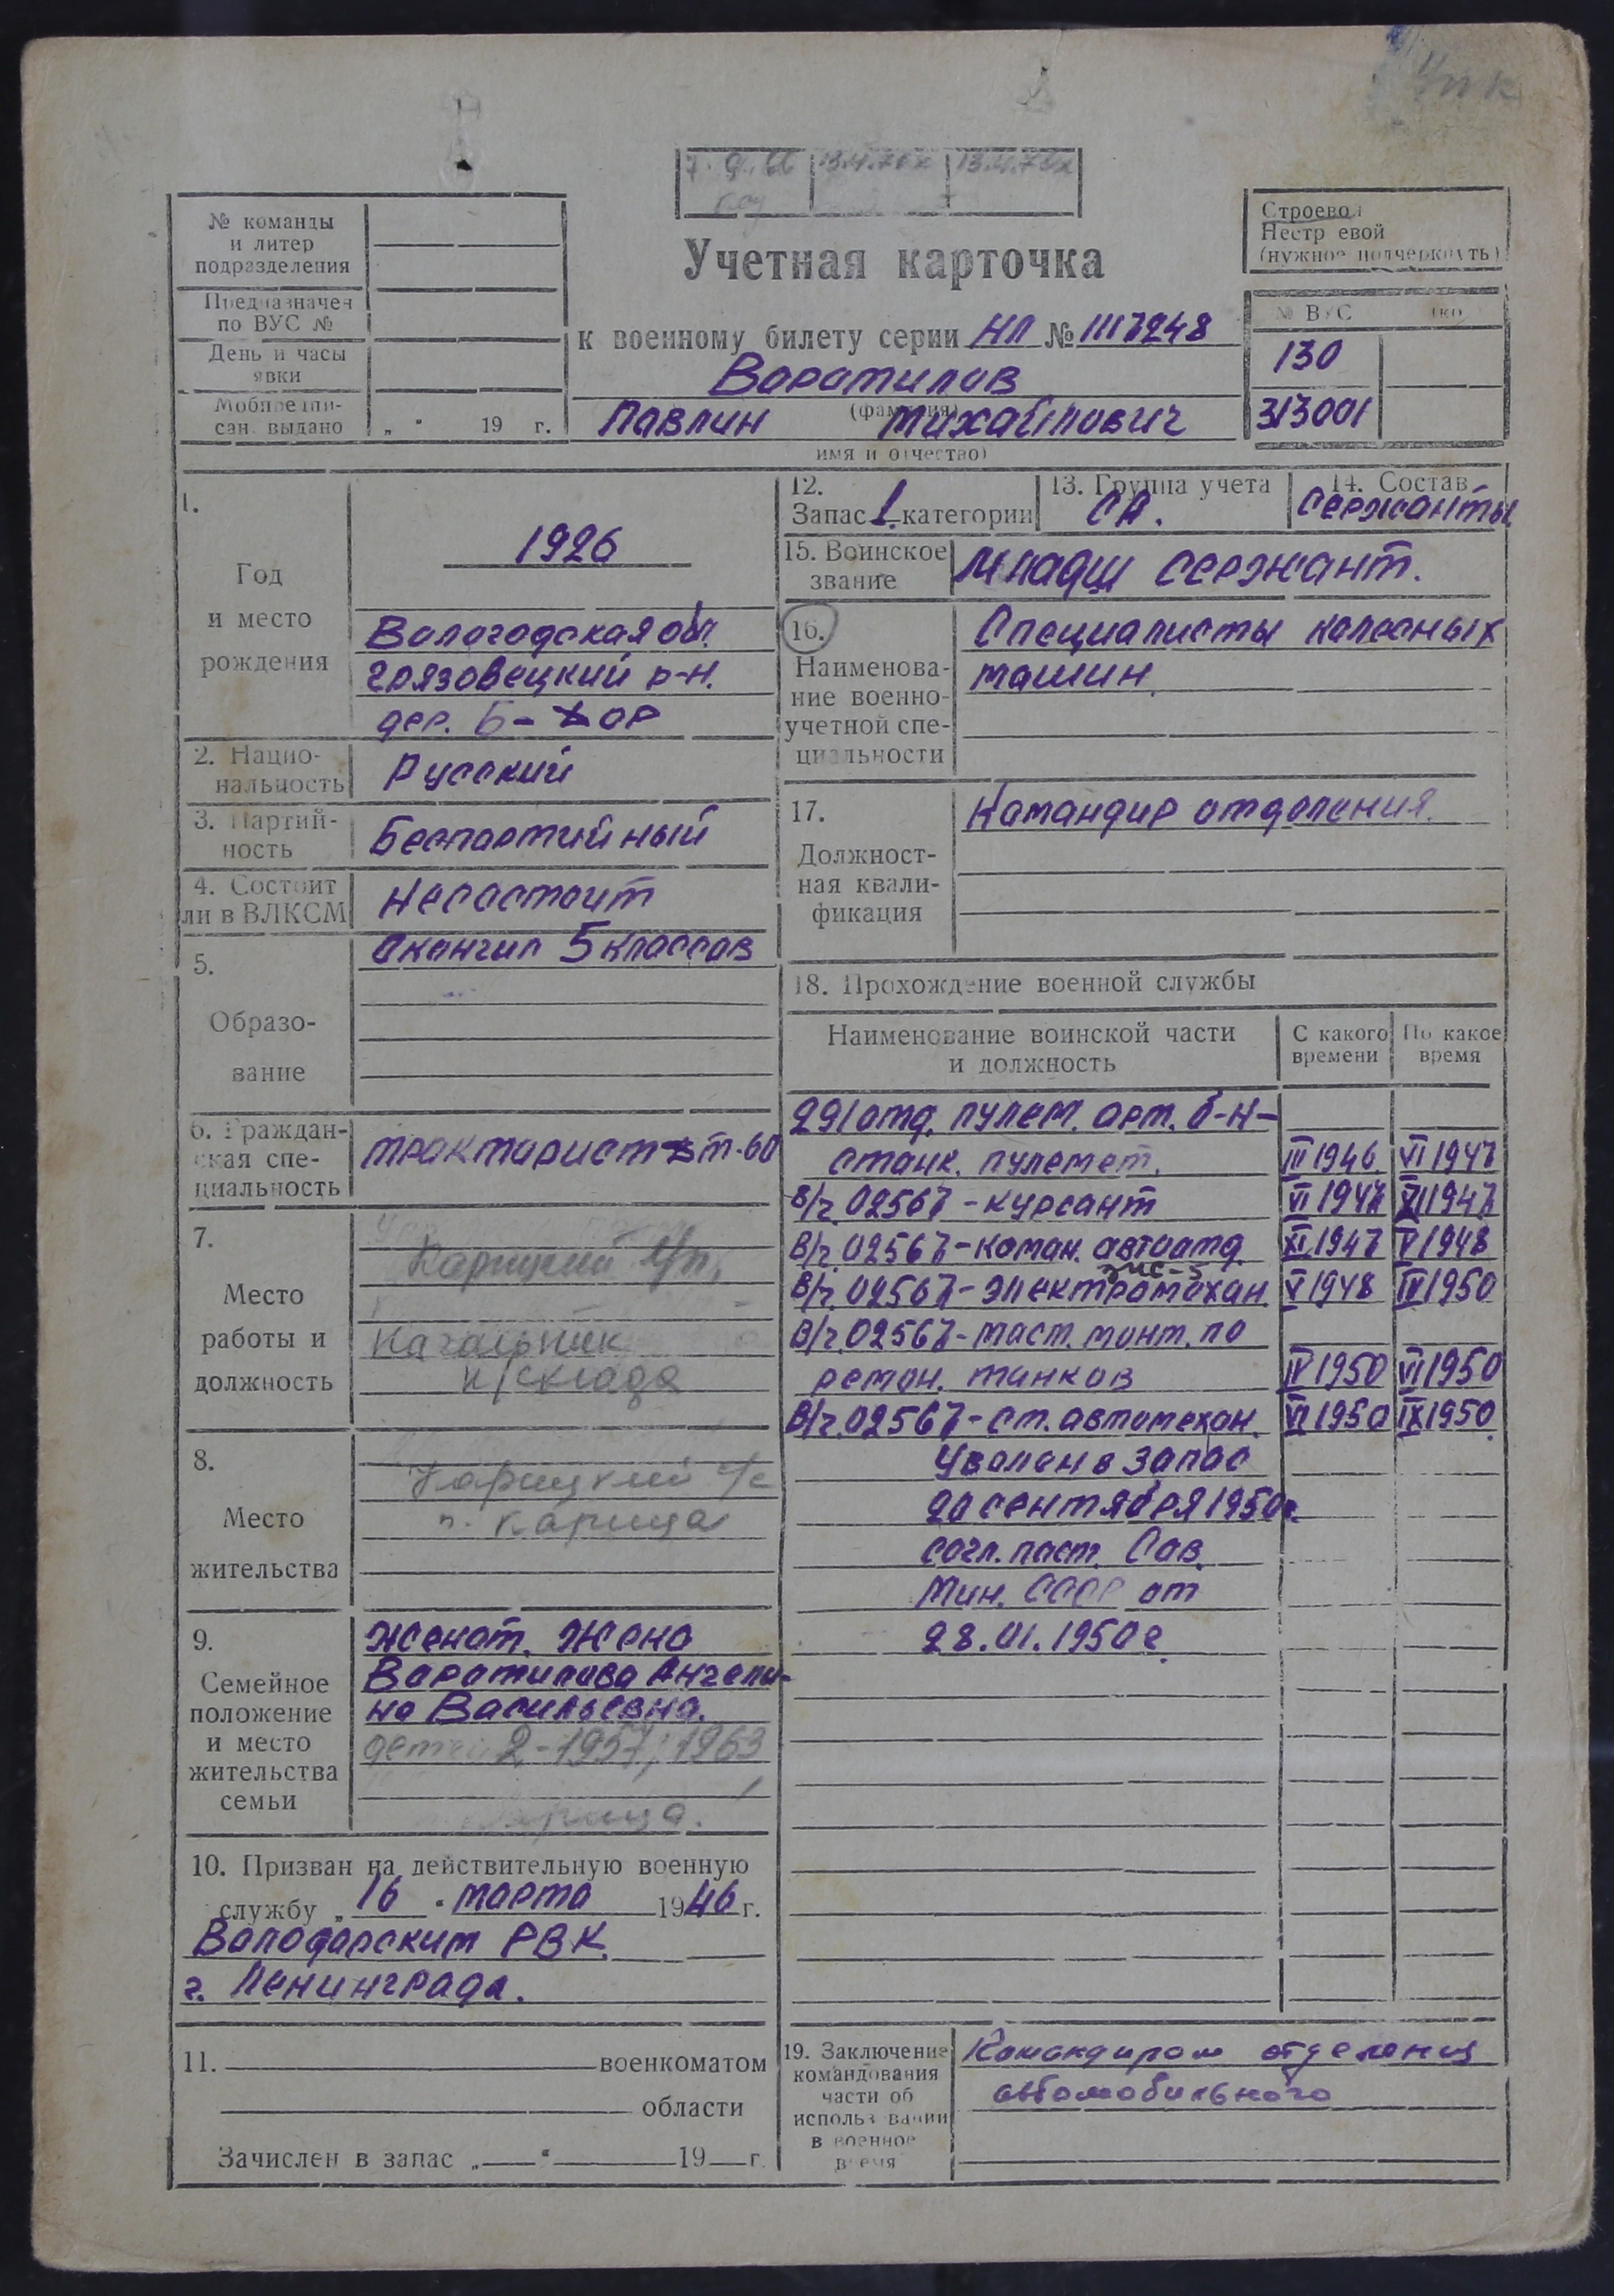 Упк
7.9.66 13.4.70г 13.4.72г
№ команды
и литер
подразделения
Предназначен
по ВУС №
День и часы
явки
Мобпредпи-
сан. выдано „ “ 19 г.
Учетная карточка
к военному билету серии НЛ № 1117248
Воротилов
(фамилия)
Павлин Михайлович
имя и отчество)
Строевой
Нестроевой
(нужное подчеркнуть)
№ ВУС
130
313001
1.
Год
и место
рождения
1926
Вологодская обл.
Грязовецкий р-н.
дер. Б-Двор
2. Нацио-
нальность
Русский
3. Партий-
ность
Беспартийный
4. Состоит
ли в ВЛКСМ
Несостоит
5.
Образо-
вание
Окончил 5 классов
6. Граждан-
ская спе-
циальность
тракторист т-60
7.
Место
работы и
должность
Карицкий
Начальник
н/склада
8.
Место
жительства
Карицкий с/с
п. Карица
9.
Семейное
положение
и место
жительства
семьи
Женат. Жена
Воротилова Ангели-
на Васильевна.
детей 2-1957, 1963
Карица.
10. Призван на действительную военную
службу „16“ марта 1946 г.
Володарским РВК.
г. Ленинграда.
11. военкоматом
области
Зачислен в запас „ “ 19 г.
12.
Запас 1 категории
13. Группа учета
СА.
14. Состав
Сержанты
15. Воинское
звание
Младш сержант.
16.
Наименова-
ние военно-
учетной спе-
циальности
Специалисты колесных
машин.
17.
Должност-
ная квали-
фикация
Командир отделения.
18. Прохождение военной службы
Наименование воинской части
и должность
С какого
времени
По какое
время
291 отд. пулем. арт. б-н-
станк. пулемет. III 1946 VI 1947
В/ч. 02567 - курсант VI 1947 XI 1947
В/ч. 02567 - коман. автоотд. XI 1947 V 1948
зис-5
В/ч. 02567 - электромехан. V 1948 IV 1950
В/ч. 02567 - маст. монт. по
ремон. танков IV 1950 VI 1950
В/ч. 02567 - ст. автомехан. VI 1950 IX 1950
Уволен в запас
20 сентября 1950г.
согл. пост. Сов.
Мин. СССР от
28.01.1950г.
19. Заключение
командования
части об
использовании
в военное
время
Командиром отделения
автомобильного